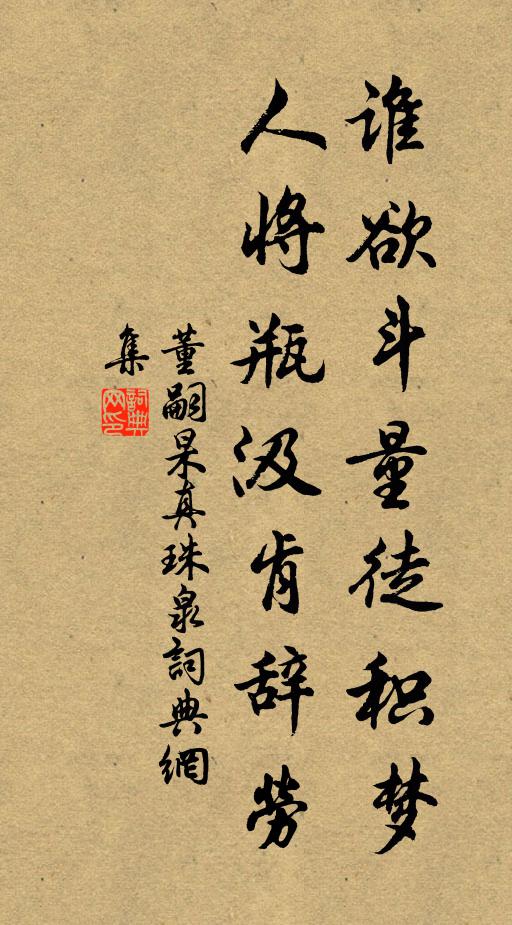 谁欲斗量徒积梦
人将瓶汲肯辞劳
董嗣杲真珠泉詞典網
集
詞典
网印